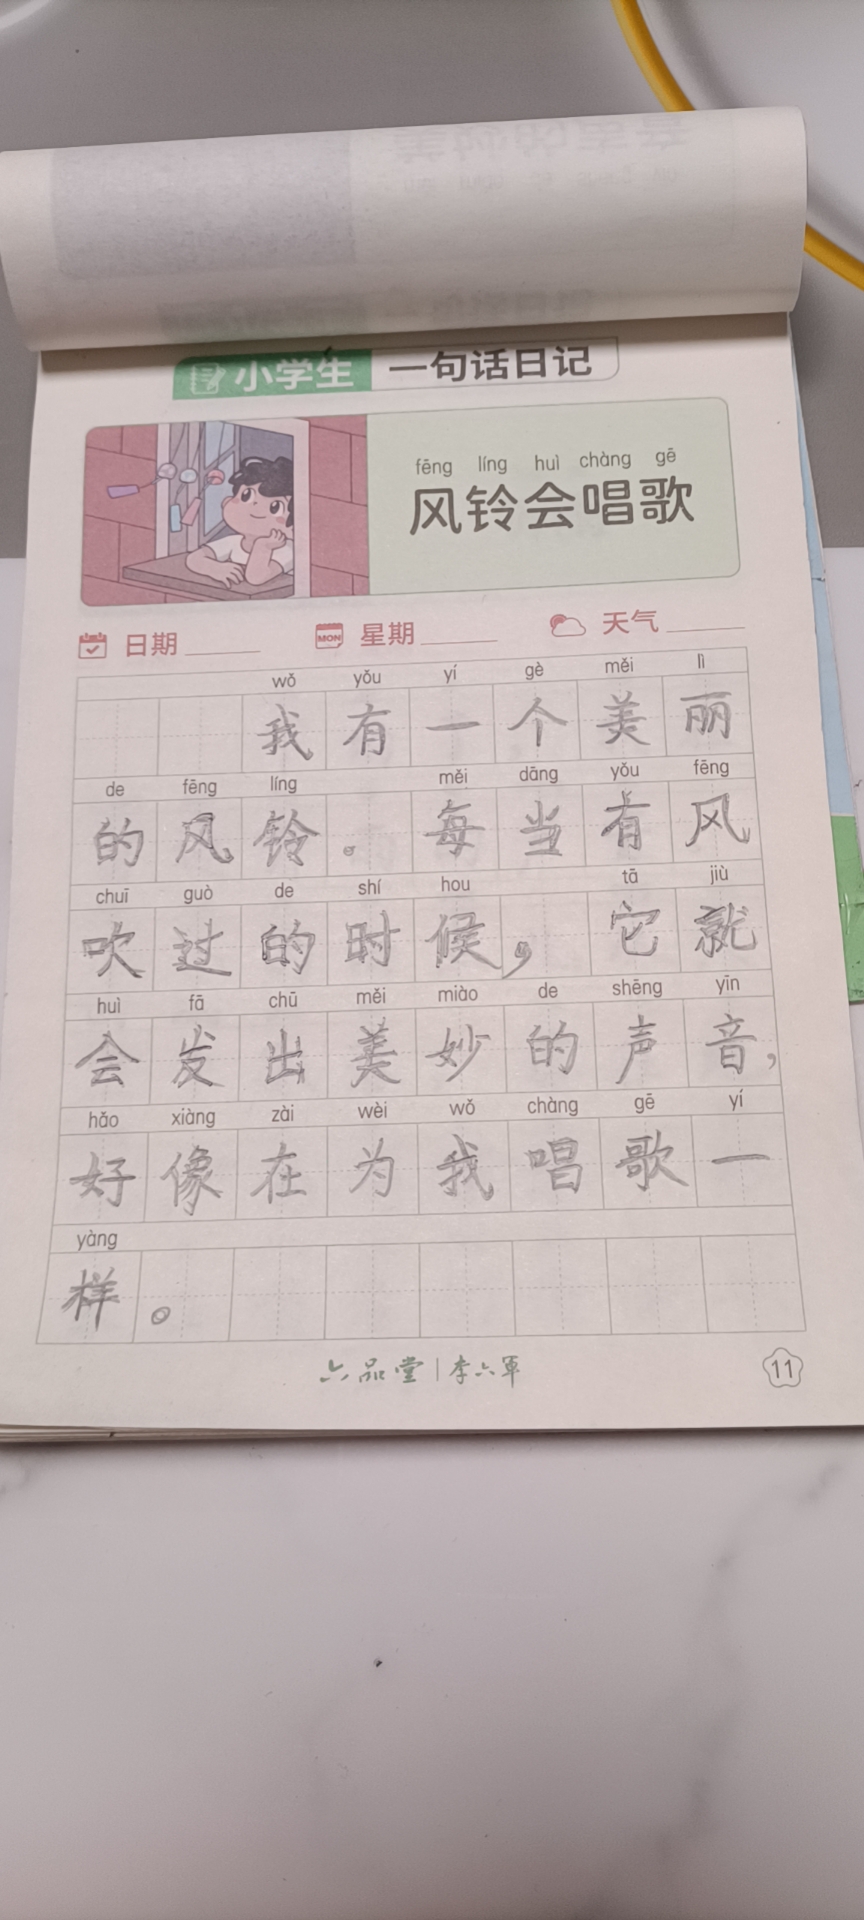 小学生 一句话日记
fēng líng huì chàng gē
风铃会唱歌
日期 MON 星期 天气
wǒ yǒu yí gè měi lì
我有一个美丽
de fēng líng měi dāng yǒu fēng
的风铃。每当有风
chuī guò de shí hou tā jiù
吹过的时候，它就
huì fā chū měi miào de shēng yīn
会发出美妙的声音，
hǎo xiàng zài wèi wǒ chàng gē yí
好像在为我唱歌一
yàng
样。
六品堂 | 李六军
11